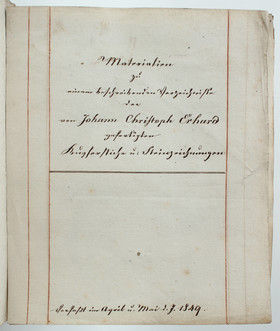 Materialien
zu
einem beschreibenden Verzeichniße
der
von Johann Christoph Erhard
gefertigten
Kupferstiche u. Steinzeichnungen
Verfaßt im April u. Mai d. J. 1849.